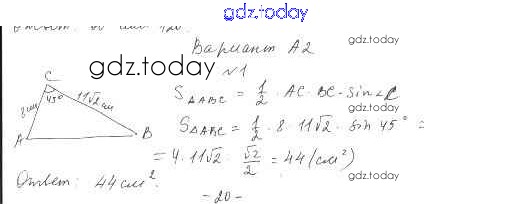 gdz.today
Вариант А2
gdz.today
gdz.today
№1
C
8см 45° 11√2 см
A B
S△ABC = 1/2 · AC · BC · sin∠C
gdz.today
S△ABC = 1/2 · 8 · 11√2 · sin 45° =
= 4 · 11√2 · √2/2 = 44 (см²)
Ответ: 44 см².
gdz.today
- 20 -